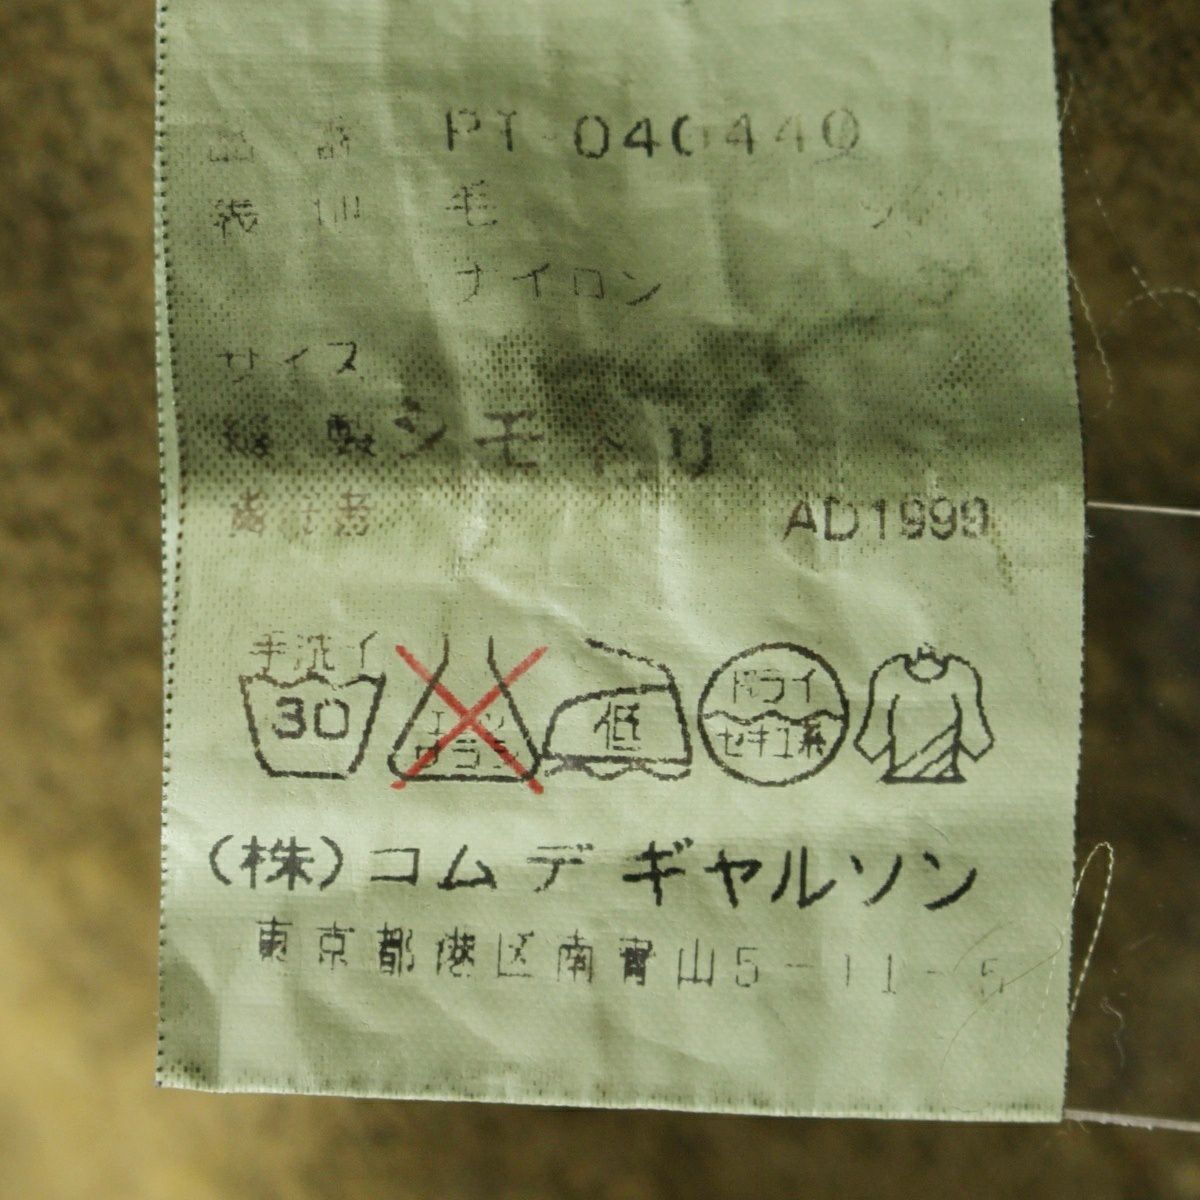 品番 PT-040440
表地 毛
ナイロン
サイズ
縫製 シモトリ
責任者
AD1999
手洗イ
30 エンソ 低 ドライ
サラシ セキユ系
(株)コムデギャルソン
東京都港区南青山5-11-5